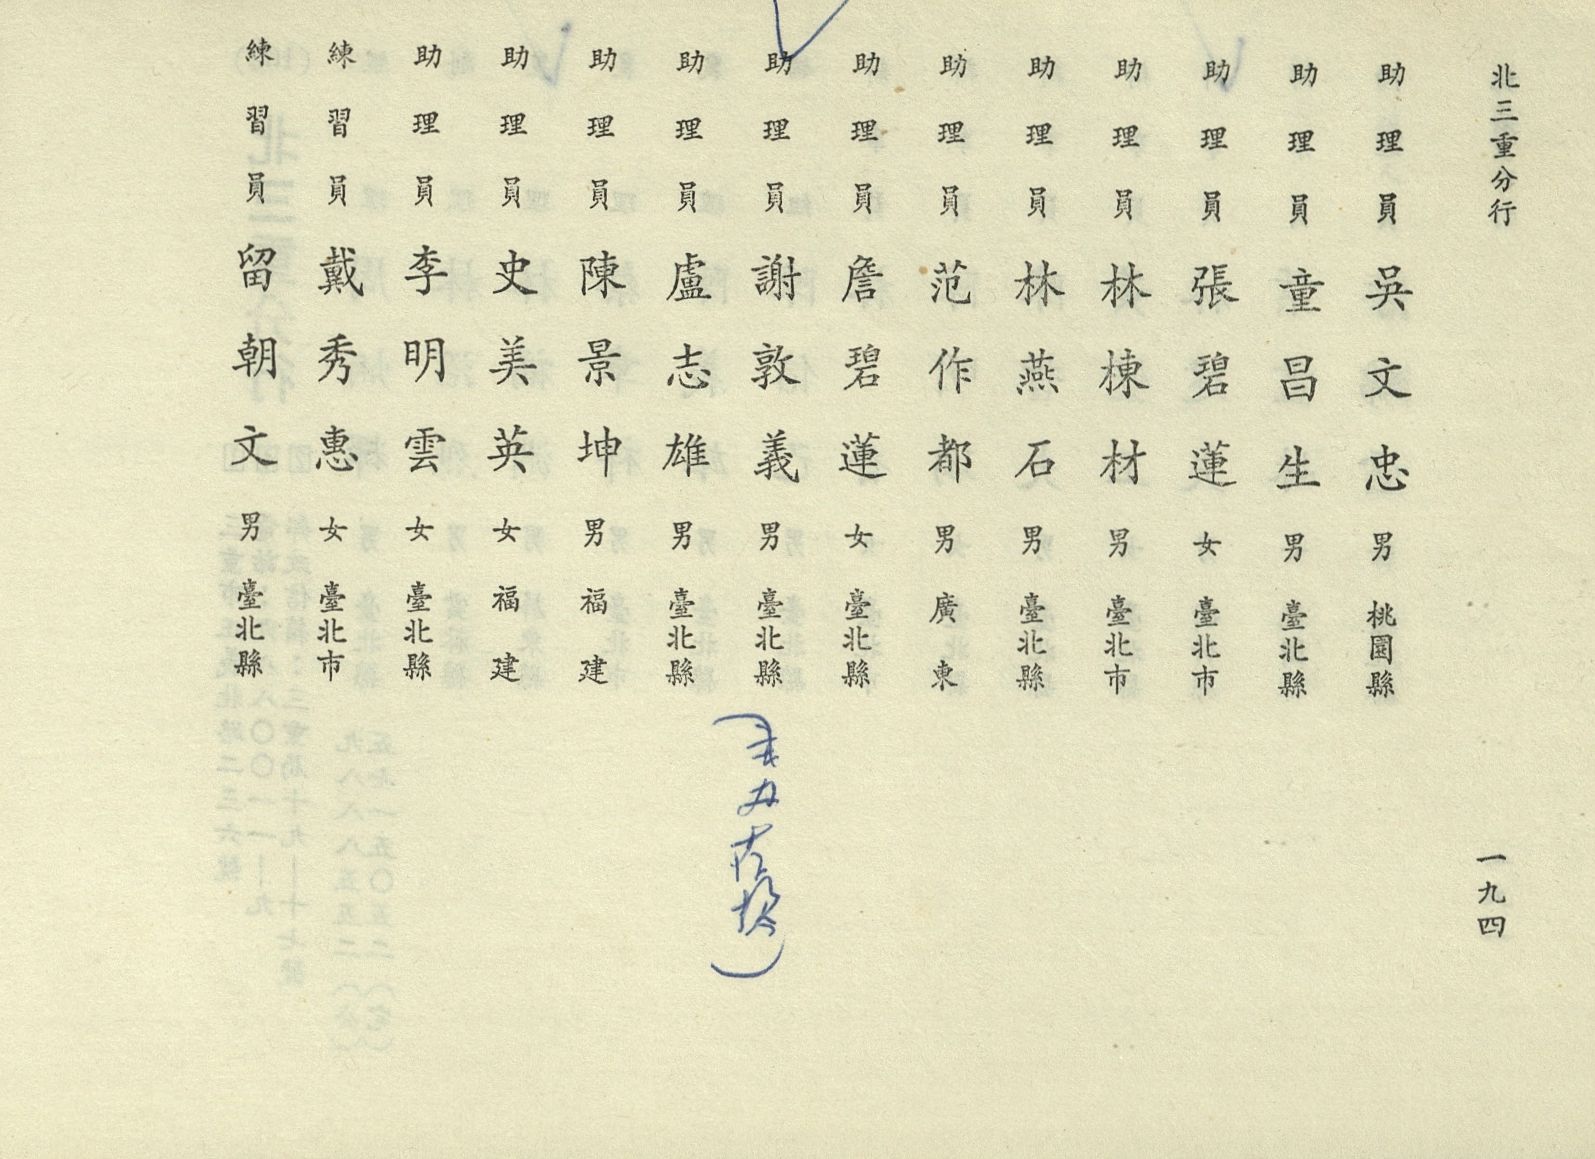 北三重分行
一九四
助理員 吳文忠 男 桃園縣
助理員 童昌生 男 臺北縣
助理員 張碧蓮 女 臺北市
助理員 林棟材 男 臺北市
助理員 林燕石 男 臺北縣
助理員 范作都 男 廣東
助理員 詹碧蓮 女 臺北縣
助理員 謝敦義 男 臺北縣
助理員 盧志雄 男 臺北縣
助理員 陳景坤 男 福建
助理員 史美英 女 福建
助理員 李明雲 女 臺北縣
練習員 戴秀惠 女 臺北市
練習員 留朝文 男 臺北縣